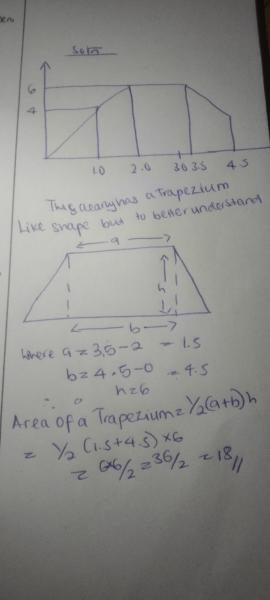 Soln
6
4
1.0 2.0 3.0 3.5 4.5
This clearly has a Trapezium
Like shape but to better understand
a
h
b
Where a = 3.5 - 2 = 1.5
b = 4.5 - 0 = 4.5
h = 6
∴
Area of a Trapezium = 1/2 (a+b) h
= 1/2 (1.5 + 4.5) × 6
= 6×6/2 = 36/2 = 18 //